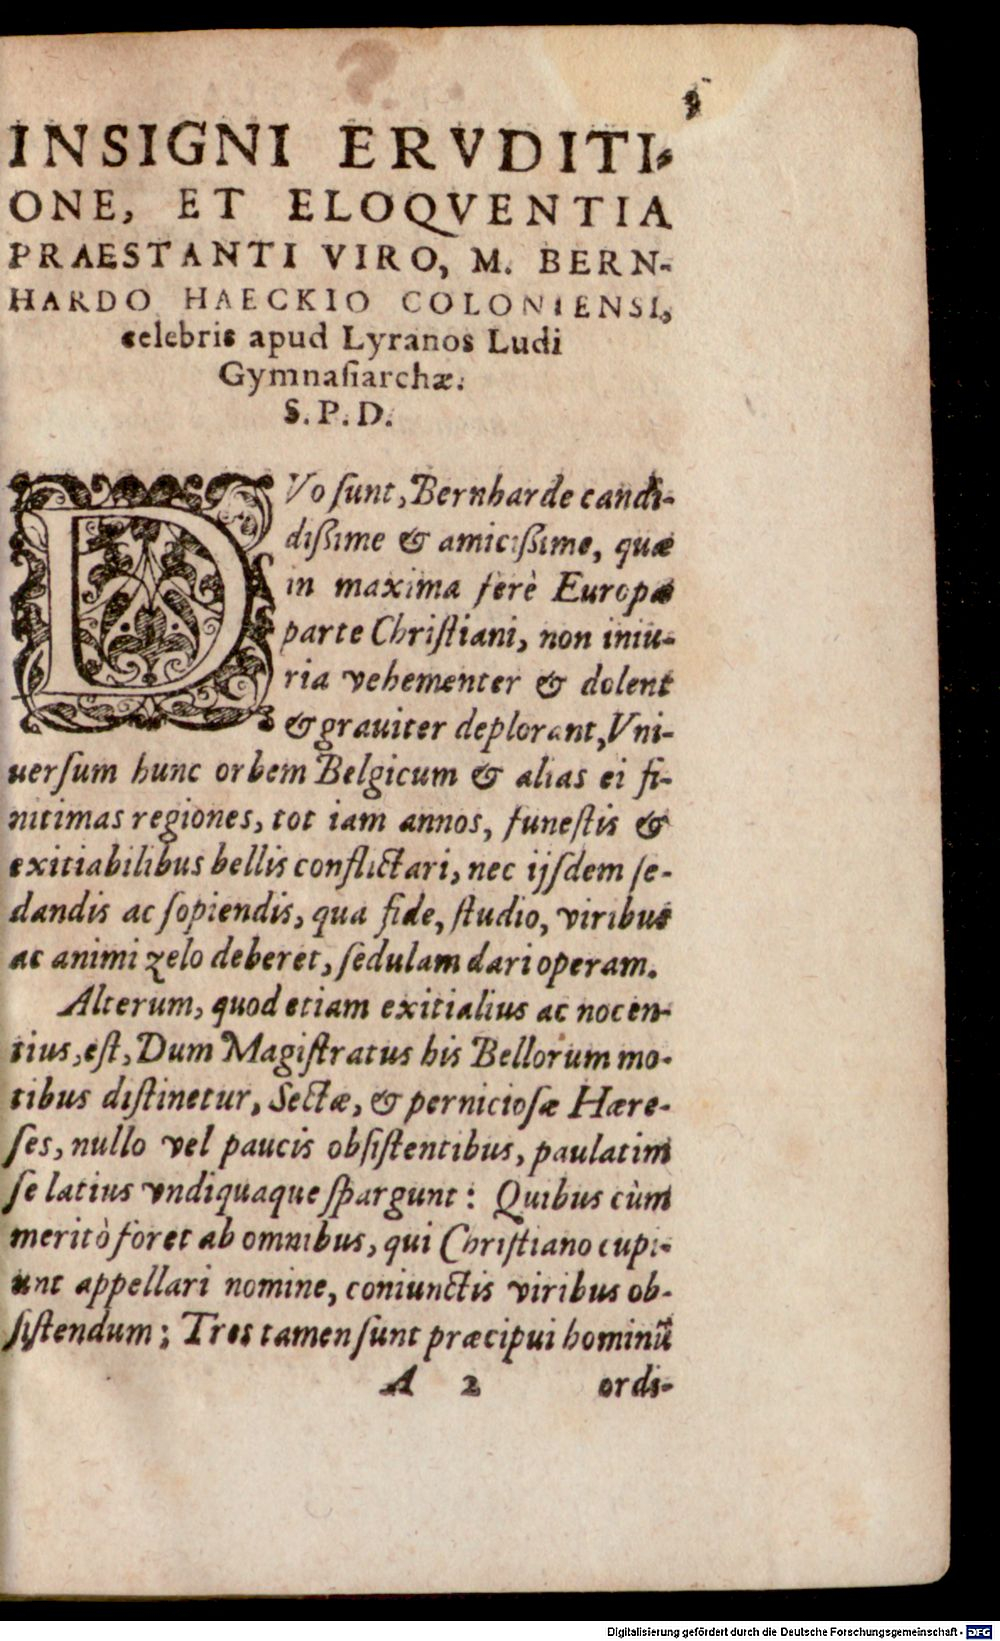 3
INSIGNI ERVDITI-
ONE, ET ELOQVENTIA
PRAESTANTI VIRO, M. BERN-
HARDO HAECKIO COLONIENSI,
celebris apud Lyranos Ludi
Gymnaſiarchæ.
S. P. D.
DVo ſunt, Bernharde candi-
diſsime & amiciſsime, quæ
in maxima ferè Europæ
parte Chriſtiani, non iniu-
ria vehementer & dolent
& grauiter deplorant, Vni-
uerſum hunc orbem Belgicum & alias ei fi-
nitimas regiones, tot iam annos, funeſtis &
exitiabilibus bellis conflictari, nec ijſdem ſe-
dandis ac ſopiendis, qua fide, ſtudio, viribus
ac animi zelo deberet, ſedulam dari operam.
Alterum, quod etiam exitialius ac nocen-
tius, eſt, Dum Magiſtratus his Bellorum mo-
tibus diſtinetur, Sectæ, & pernicioſæ Hære-
ſes, nullo vel paucis obſiſtentibus, paulatim
ſe latius vndiquaque ſpargunt: Quibus cùm
meritò foret ab omnibus, qui Chriſtiano cupi-
unt appellari nomine, coniunctis viribus ob-
ſiſtendum; Tres tamen ſunt præcipui hominũ
A 2 ordi-
Digitalisierung gefördert durch die Deutsche Forschungsgemeinschaft - DFG